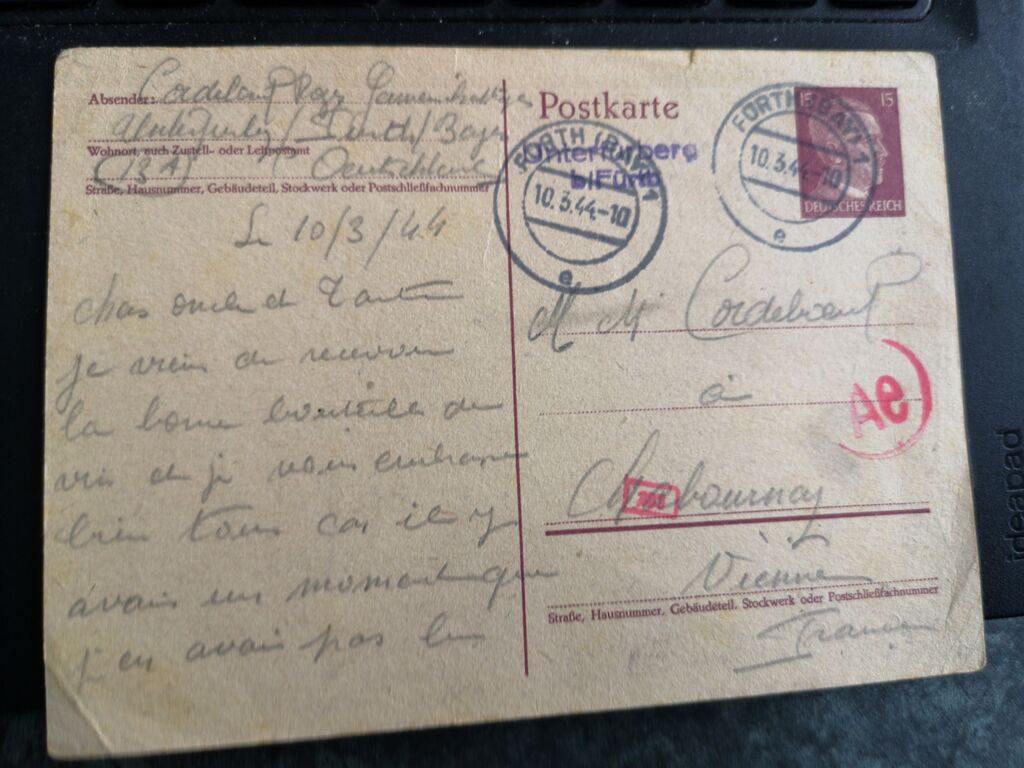 Absender: Cordeboeuf
Unterfurberg / Fürth / Bayer
Wohnort, auch Zustell- oder Leitpostamt
(13A) Deutschland
Straße, Hausnummer, Gebäudeteil, Stockwerk oder Postschließfachnummer
Le 10/3/44
cher oncle et Tante
je viens de recevoir
la bonne bouteille de
vin et je vous embrasse
bien tous car il y
avais un moment que
j'en avais pas bu
Postkarte
Unterfürberg
b/Fürth
FÜRTH (BAY) 1
10.3.44-10
e
FÜRTH (BAY) 1
10.3.44-10
e
15 15
DEUTSCHES REICH
M Cordeboeuf
à
Ae
Charbournay
Vienne
Straße, Hausnummer, Gebäudeteil, Stockwerk oder Postschließfachnummer
France
ideapad